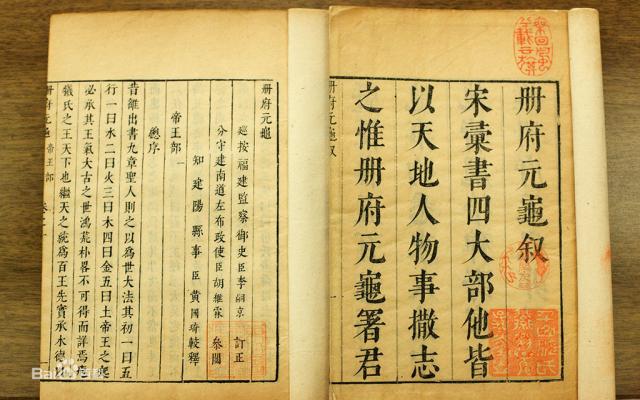 册府元龜叙
宋彙書四大部他皆
以天地人物事撒志
之惟册府元龜署君
册府元龜叙
册府元龜
巡按福建監察御史臣李嗣京 訂正
分守建南道左布政使臣胡維霖 參閱
知建陽縣事臣黃國琦較釋
帝王部一
總序
昔雒出書九章聖人則之以為世大法其初一曰五
行一曰水二曰火三曰木四曰金五曰土帝王之起
必承其王氣太古之世鴻荒朴畧不可得而詳焉庖
犧氏之王天下也繼天之統為百王先實承木德
册府元龜 帝王部 卷之一
Bai 百科